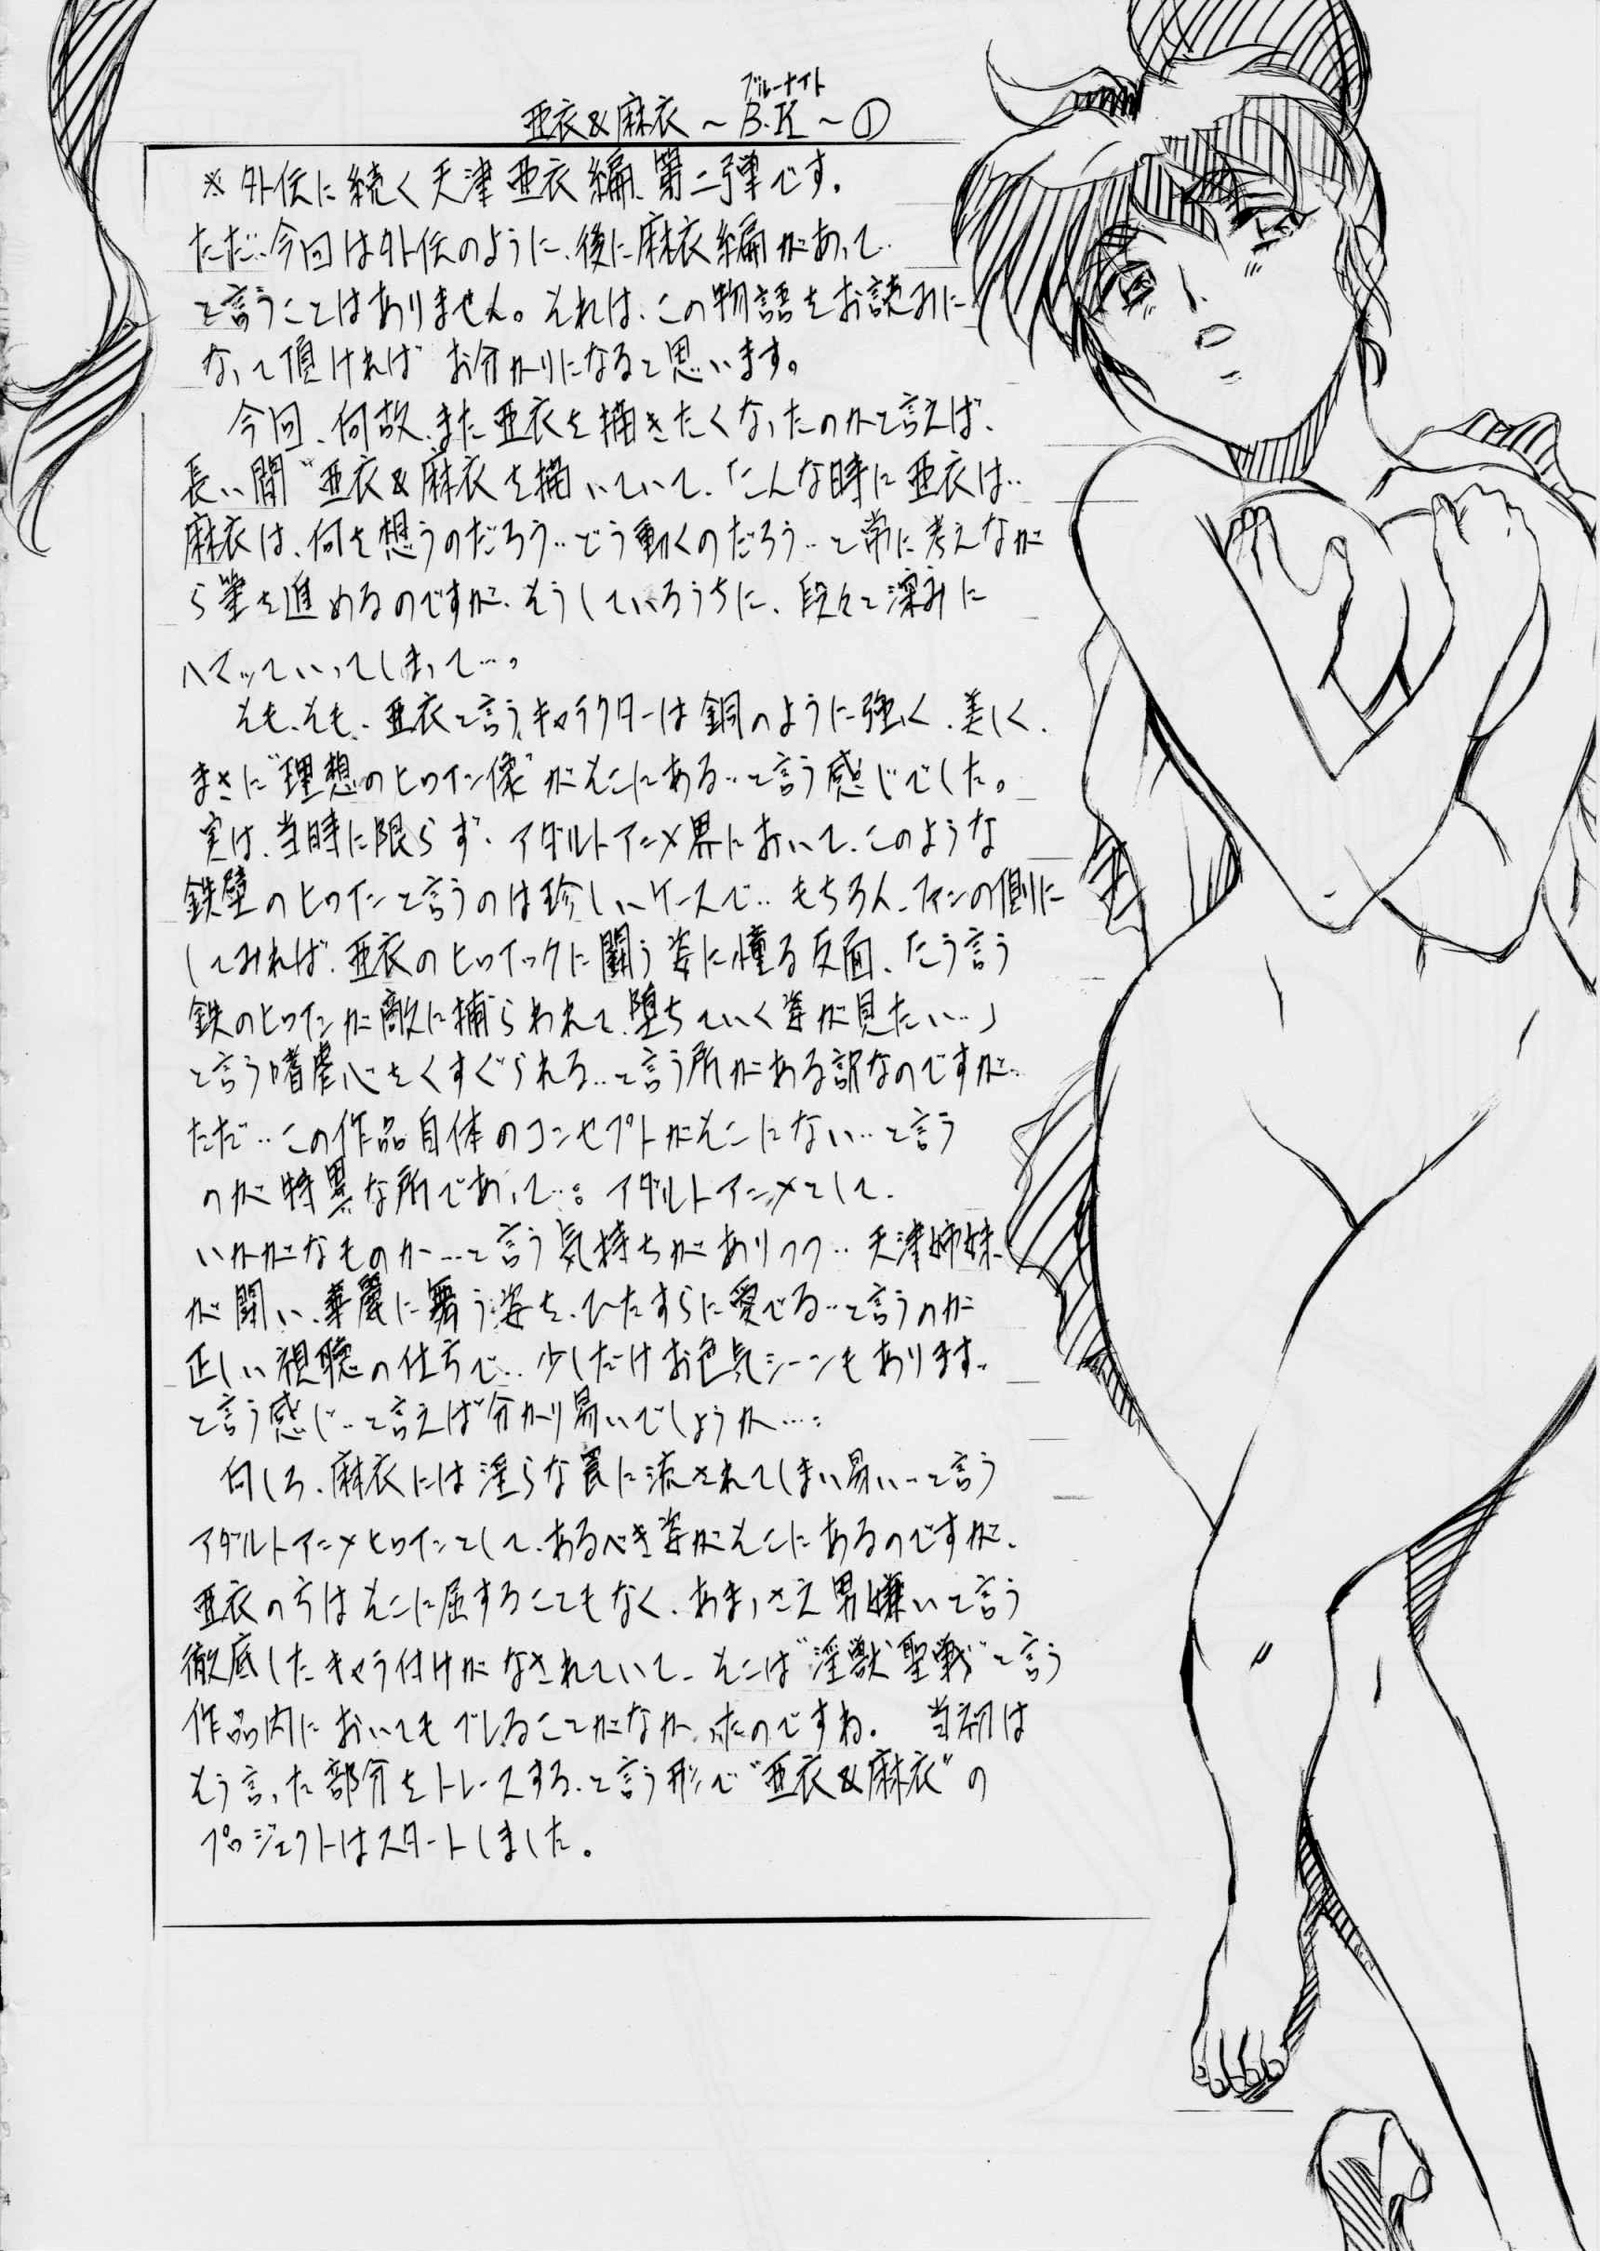 ブルーナイト
亜衣&麻衣～B.K～①
※外伝に続く天津亜衣編、第二弾です。
ただ、今回は外伝のように、後に麻衣編があって‥
と言うことはありません。それは、この物語をお読みに
なって頂ければ お分かりになると思います。
今回、何故、また亜衣を描きたくなったのかと言えば、
長い間"亜衣&麻衣を描いていて、「こんな時に亜衣は‥
麻衣は、何を想うのだろう‥どう動くのだろう‥と常に考えなが
ら筆を進めるのですが、そうしているうちに、段々と深みに
ハマッていってしまって…。
そもそも、亜衣と言うキャラクターは鋼のように強く、美しく、
まさに"理想のヒロイン像"がそこにある‥と言う感じでした。
実は、当時に限らず、アダルトアニメ界において、このような
鉄壁のヒロインと言うのは珍しいケースで‥もちろん、ファンの側に
してみれば、亜衣のヒロイックに闘う姿に憧る反面、「こう言う
鉄のヒロインが敵に捕らわれて、堕ちていく姿が見たい‥」
と言う嗜虐心をくすぐられる‥と言う所がある訳なのですが‥
ただ‥この作品自体のコンセプトがそこにない‥と言う
のが特異な所であって…。アダルトアニメとして、
いかがなものか…と言う気持ちがありつつ‥天津姉妹
が闘い、華麗に舞う姿を、ひたすらに愛でる‥と言うのが
正しい視聴の仕方で‥少しだけお色気シーンもあります‥
と言う感じ‥と言えば分かり易いでしょうか…。
何しろ、麻衣には淫らな罠に流されてしまい易い‥と言う
アダルトアニメヒロインとして、あるべき姿がそこにあるのですが、
亜衣の方はそこに屈することもなく、あまっさえ男嫌いと言う
徹底したキャラ付けがなされていて、そこは"淫獣聖戦"と言う
作品内においてもブレることがなかったのですね。 当初は
そう言った部分をトレースする、と言う形で"亜衣&麻衣"の
プロジェクトはスタートしました。
4